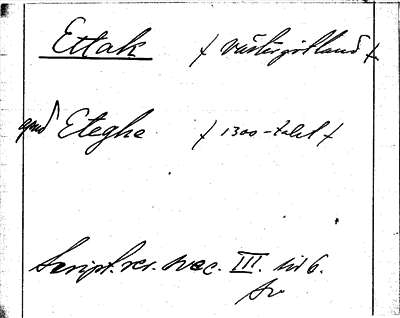 Ettak † västergötland †
apud Eteghe † 1300-talet †
Script. rer. svec. III. 6.